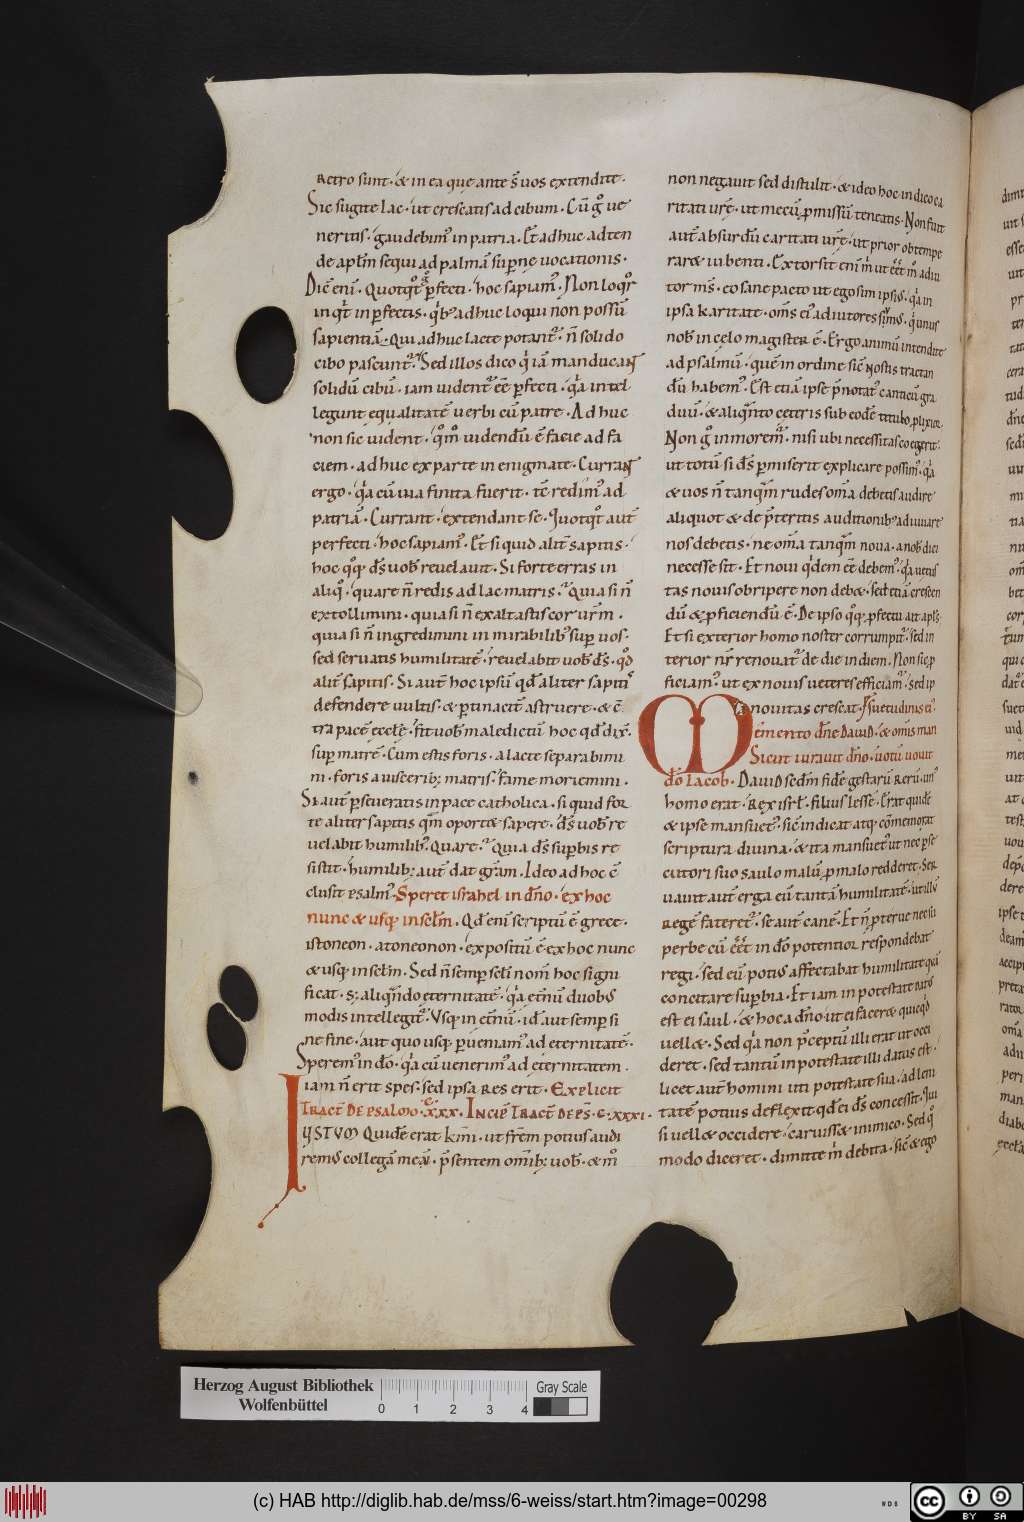 retro sunt · & in ea que ante s̄ uos extendite ·
Sic sugite lac · ut crescatis ad cibum · Cū g̊ ue
neritis · gaudebim᷒ in patria · Et̄ adhuc ad ten
de apłm sequi ad palmā supne uocationis ·
Dic̄ eni᷒ · Quotq̊t p̄fecti · hoc sapiam᷒ · Non loq̊r
in q̇t inp̄fectis · q̇b᷒ adhuc loqui non possū
sapientiā · Qui adhuc lacte potant᷒ · n̄ solido
cibo pascunt᷒ · Sed illos dico q̇ iā manducant
solidū cibū · iam uident᷒ ēē p̄fecti · q̇a intel
legunt equalitatē uerbi cū patre · Adhuc
non sic uident · q̊m̊ uidendū ē facie ad fa
ciem · adhuc ex parte in enigmate · Currant
ergo · q̇a cū uia finita fuerit · tē redim᷒ ad
patriā · Currant · extendant se · Quotq̊t aut̄
perfecti · hoc sapiam᷒ · Et̄ si quid alit̄ sapitis ·
hoc q̊q̷ d̄s uob̄ reuelauit · Si forte erras in
aliq̊ · quare n̄ redis ad lac matris · Quia si n̄
extollimini · quia si n̄ exaltastis cor ur̄m ·
quia si n̄ ingredimini in mirabilib᷒ sup uos ·
sed seruatis humilitatē · reuelabit uob̄ d̄s · q̊d
alit̄ sapitis · Si aut̄ hoc ipsū qd̄ aliter sapitis
defendere uultis · & ptinacit̄ astruere · & c̄
tra pacē eccłę · fit uob̄ maledictū hoc qd̄ dix̄ ·
sup matrē · Cum estis foris · a lacte separabimi
ni · foris a uiscerib; matris · fame moriemini ·
Si aut̄ pseueratis in pace catholica · si quid for
te aliter sapitis qm̄ oport& sapere · d̄s uob̄ re
uelabit humilib᷒ · Quare · Quia d̄s supbis re
sistit · humilib; aut̄ dat gr̄am · Ideo ad hoc ē
clusit psalm᷒ · Speret israhel in dn̄o · ex hoc
nunc & usq̷ in secłm · Qd̄ eni᷒ scriptū ē grece ·
istoneon · atoneonon · expositū ē ex hoc nunc
& usq̷ in secłm · Sed n̄ semp secłi nom̄ hoc signi
ficat · s; aliqn̄do eternitatē · q̇a et̄nū duob᷒
modis intellegit᷒ · Usq̷ in et̄nū · id̄ aut semp si
ne fine · aut quo usq̷ pueniam᷒ ad eternitatē ·
Sperem᷒ in dō · q̇a cū uenerim᷒ ad eternitatem
iam n̄ erit spes · sed ipsa res erit · Explicit
Tract̄ de psalmo · cxxx · Incip̄ Tract̄ de ps · c · xxxi ·
Iustum Quidē erat kmi᷒ · ut fr̄em potius audi
rem᷒ collegā meū · p̄sentem omīb; uob̄ · & m̊
non negauit sed distulit · & ideo hoc indico ca
ritati urē · ut mecū pmissū teneatis · Non fuit
aut̄ absurdū caritati urē · ut prior obtempe
rar& iubenti · Extorsit eni᷒ m̊ ut ēēt m̊ adiu
tor ms̄ · eo sane pacto ut ego sim ipsi᷒ · q̇a in
ipsa karitate · om̄s ei᷒ adiutores sum᷒ · q̇ unus
nob̄ in celo magister ē · Ergo animū intendite
ad psalmū · quē in ordine sic̄ nostis tractan
dū habem᷒ · Est etiā ipse p̄notat᷒ canticū gra
duū · & aliqn̄to ceteris sub eodē titulo plixior
Non g̊ inmorem᷒ · nisi ubi necessitas coegerit ·
ut totū si d̄s pmiserit explicare possim᷒ · q̇a
& uos n̄ tanqm̄ rudes om̄a debetis audire
aliquot & de p̄teritis auditionib᷒ adiuuare
nos debetis · ne om̄a tanqm̄ noua · a nob̄ dici
necesse sit · Et noui q̇dem ēē debem᷒ · q̇a uetus
tas nouis obripere non deb& · sed etiā crescen
dū & pficiendū ē · De ipso q̊q̷ pfectu ait apłs
Et si exterior homo noster corrumpit᷒ · sed in
terior nr̄ renouat᷒ de die in diem · Non sic p
ficiam᷒ · ut ex nouis ueteres efficiam᷒ · sed ip
sa nouitas crescat ·
Memento dn̄e Dauid · & omnis man
Sicut iurauit dn̄o · uotū uouit
dō Iacob · Dauid sedm̄ fidē gestarū rerū · un᷒
homo erat · rex isrł · filius Iesse · Erat quidē
& ipse mansuet᷒ · sic̄ indicat atq̷ cōmemorat
scriptura diuina · & ita mansuet᷒ ut nec pse
cutori suo Saulo malū pmalo redderet · Ser
uauit aut̄ erga eū tantā humilitatē · ut illū
regē fateret᷒ · se aut̄ canē · Et n̄ pterue nec su
perbe cū ēēt in dō potentior respondebat
regi · sed eū poti᷒ affectabat humilitate quā
concitare supbia · Et iam in potestate datus
est ei Saul · & hoc a dn̄o ut ei facer& quicqd
uell& · Sed q̇a non p̄ceptū illi erit ut occi
deret · sed tantū in potestate illi datus est ·
licet aut̄ homini uti potestate sua · ad leni
tatē potius deflexit qd̄ ei d̄s concessit · Qui
si uell& occidere · caruiss& inimico · Sed q̊
modo diceret · dimitte m̊ debita · sic̄ & ego
Herzog August Bibliothek
Wolfenbüttel
0 1 2 3 4
Gray Scale
(c) HAB http://diglib.hab.de/mss/6-weiss/start.htm?image=00298
cc BY SA